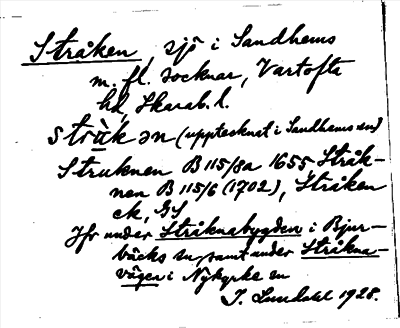 Stråken, sjö i Sandhems
m. fl. socknar, Vartofta
hd, Skarab. l.
stråkən (upptecknat i Sandhems sn)
Struknen B 115/8a 1655 Stråk-
nen B 115/6 (1702), Stråken
ek, GS
Jfr under Stråknabygden i Bjur-
bäcks sn, samt under Stråkna-
vägen i Nykyrke sn
I. Lundahl 1928.